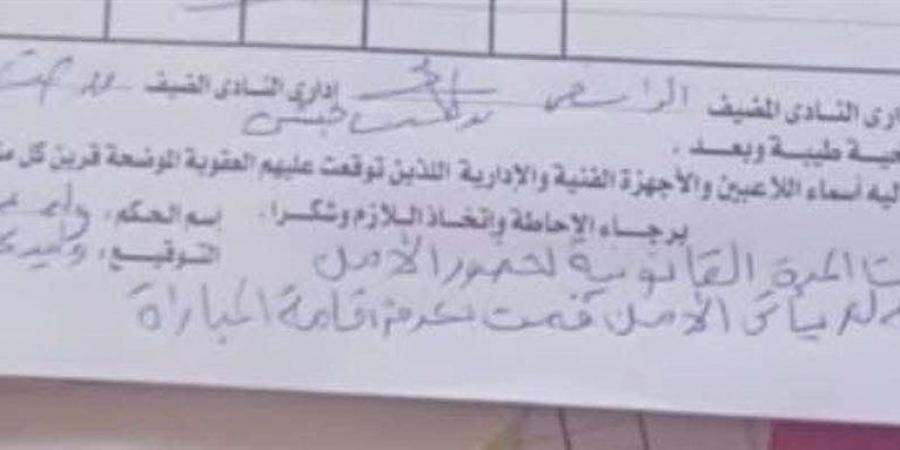 ارى النادى المضيف إدارى النادى الضيف
حية طيبة وبعد ،
ليه أسماء اللاعبين والأجهزة الفنية والإدارية اللذين توقعت عليهم العقوبة الموضحة قرين كل من
برجاء الإحاطة وإتخاذ اللازم وشكرا، إسم الحكم، وليد
التوقيع، وليد
ت المدة القانونية لحضور الأمن
الأمن قمت بعدم اقامة المباراة